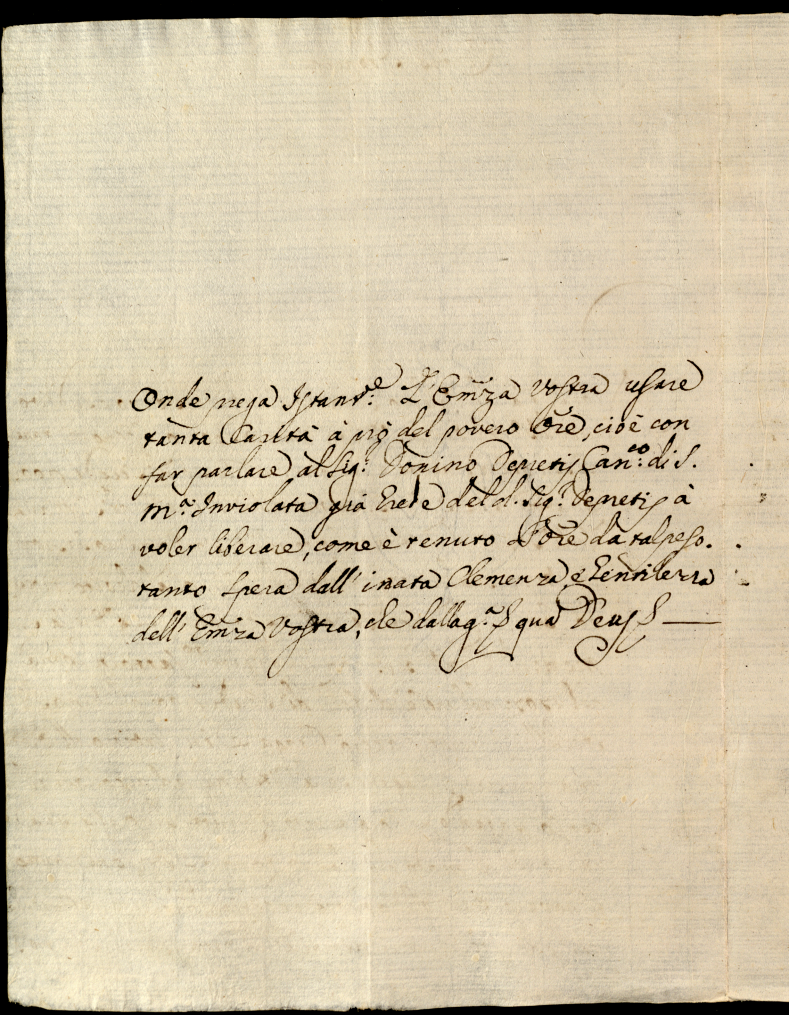 Onde prega Istant.e L'Em̃za Vostra usare
tanta Carità à prò del povero Ore, cioè con
far parlare al Sig.r Donino Depretis Can.co di S.
M.a Inviolata già Erede del d. Sig.r Depretis à
voler liberare, come è tenuto d'Ore da tal peso.
tanto spera dall'inata Clemenza, e Gentilezza
dell'Em̃za Vostra, che dalla q.a qua Deus